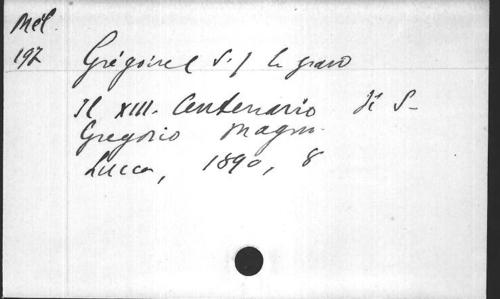 Mél.
197
Grégoire S. / le grand
Il XIII. Centenario di S.
Gregorio Magno.
Lucca, 1890, 8